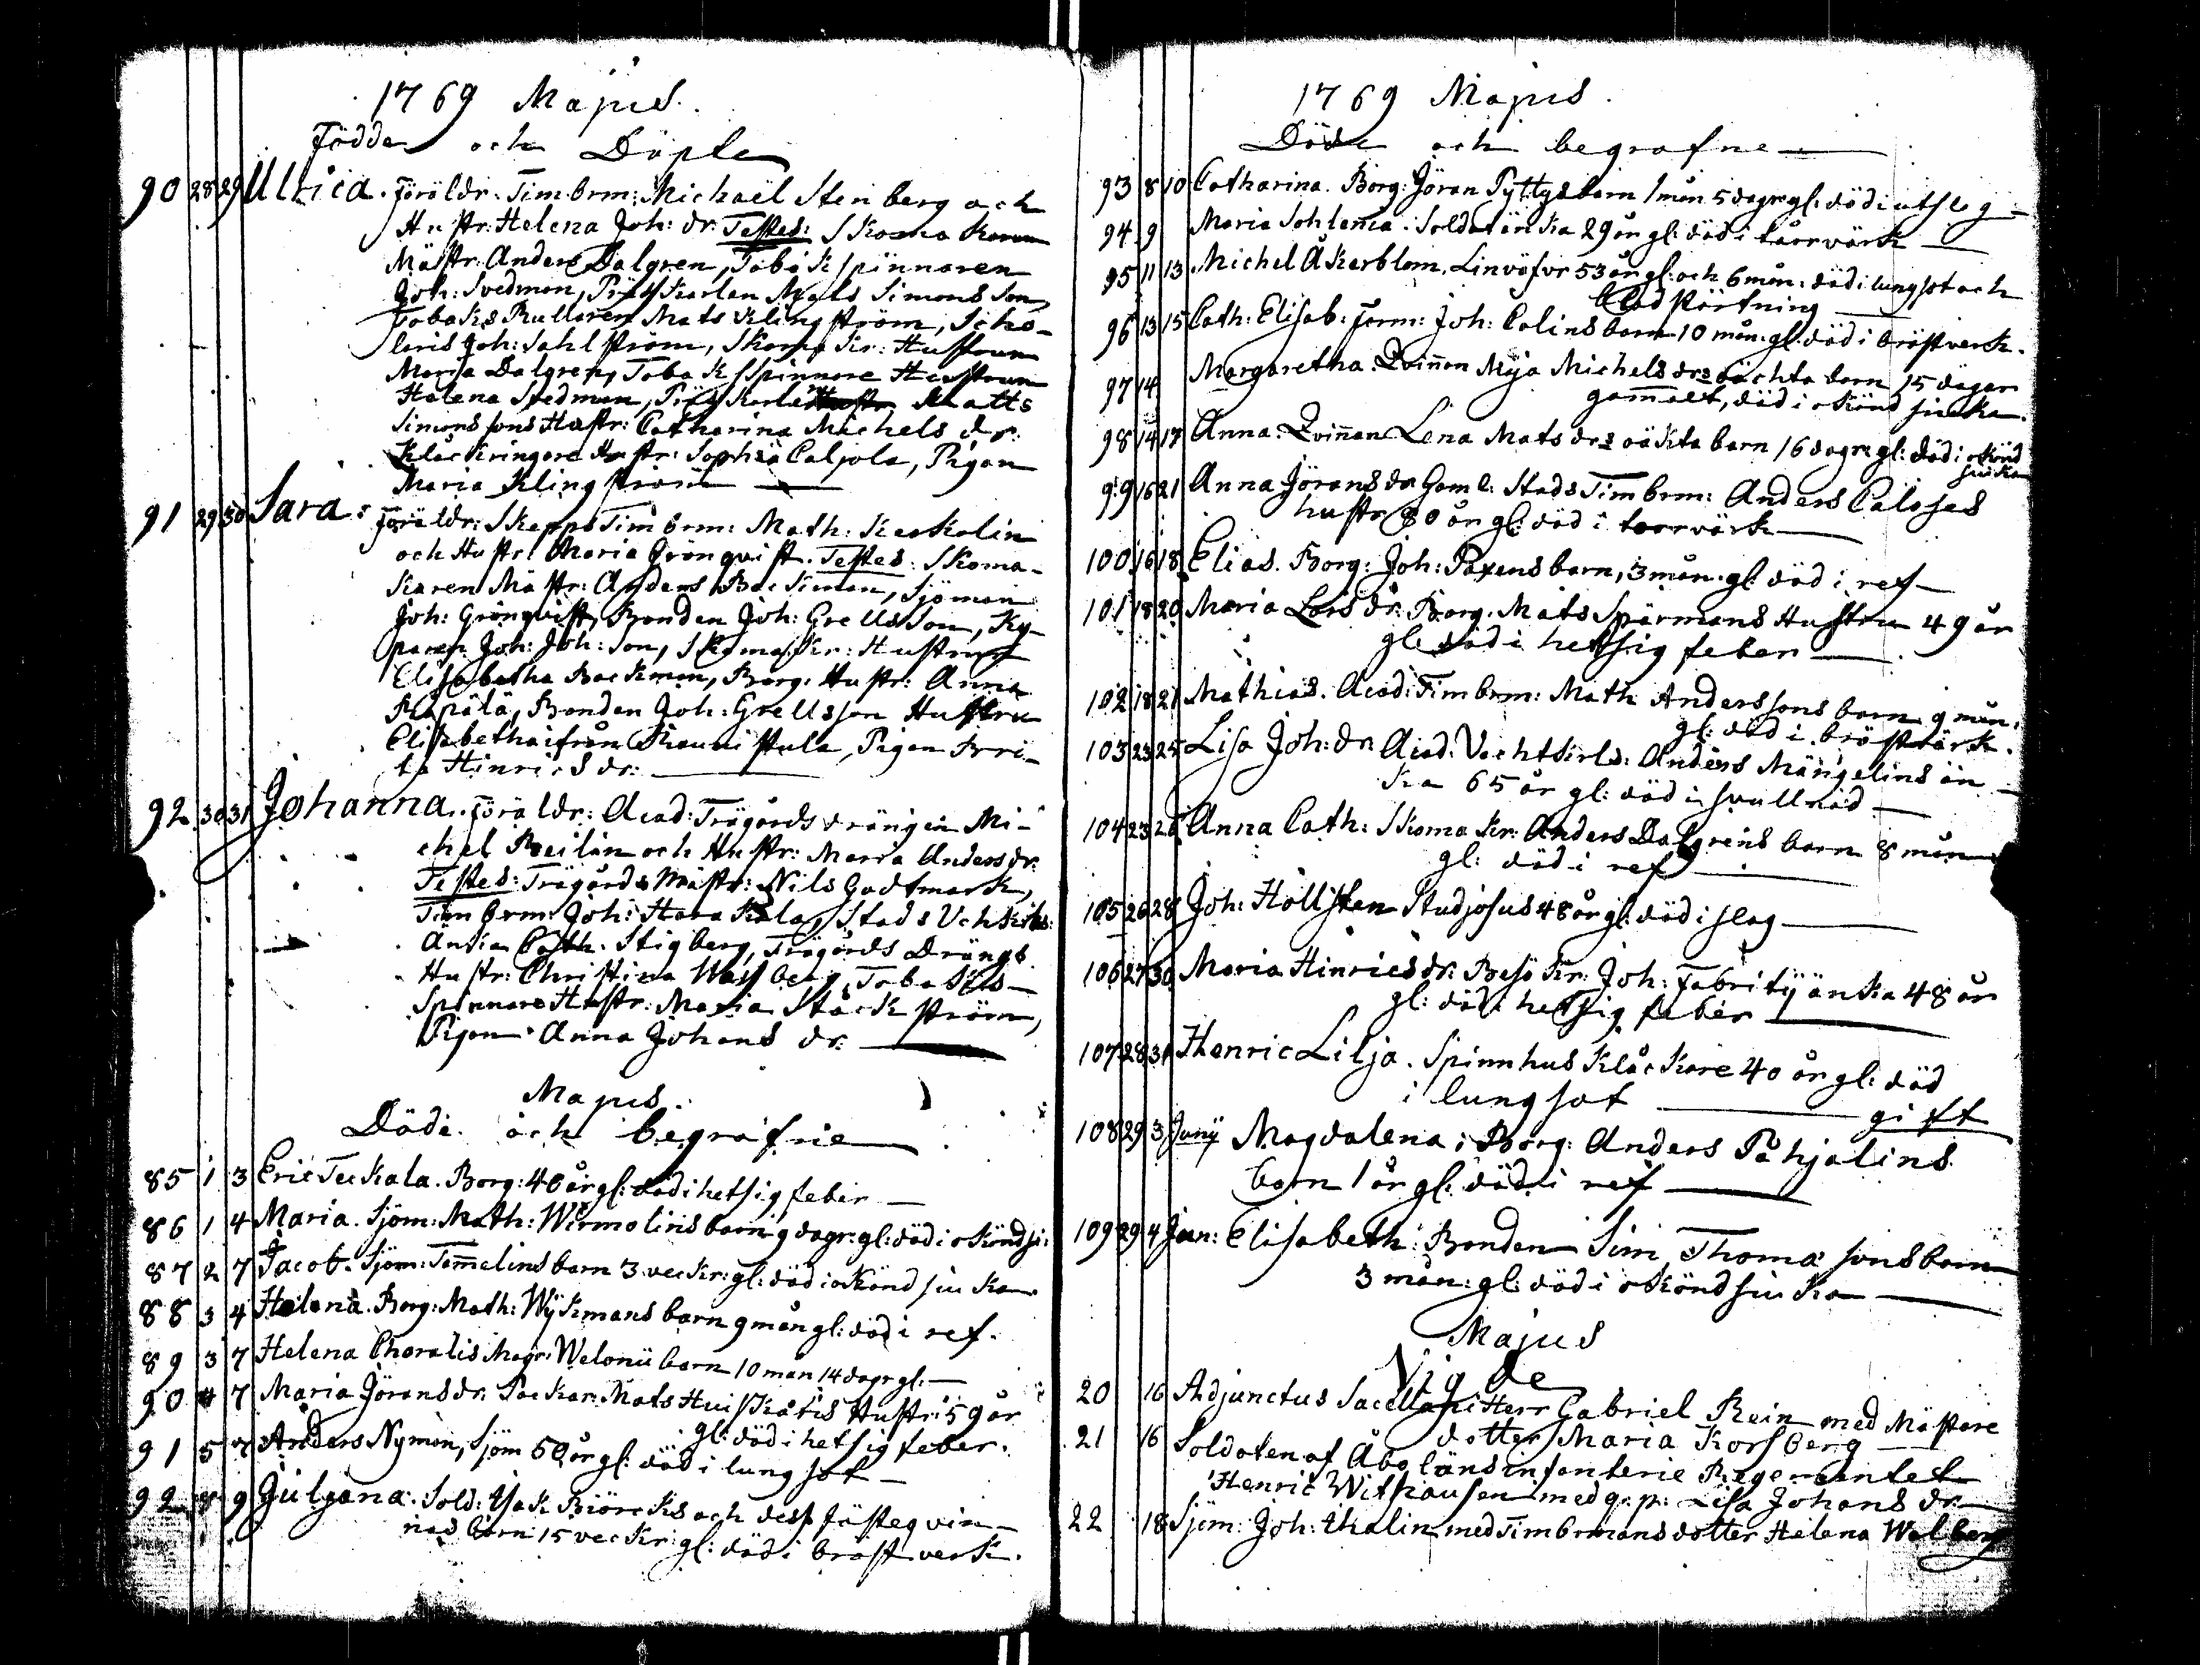 1769 Majus.
Födda och Döpte
90 28 29 Ulrica. Föräldr. Timbrm: Michaël Stenberg och
Hustr: Helena Joh: dr: Testes: Skoma karen
Mästr: Anders Dalgren, Tobakspinnaren
Joh: Svedman, Präs karlen Mats Simons Son,
Tobaks Rullaren Mats Klingström, Scho-
laris Joh: Sahlström, Skomakr: Hustrun
Maria Dalgren, Tobakspinnare Hustrun
Helena Svedman, Matts
Simonssons Hustr: Catharina Michels dr:
Klåckringare Hustr: Sophia Caljola, Pigan
Maria Klingström
91 29 30 Sara: Föräldr: Skepps Timbrm: Math: Keskolin
och Hustr: Maria Grönqvist. Testes: Skoma-
karen Mästr: Anders Backman, Sjöman
Joh: Grönqvist, Bonden Joh: Grellsson, Ky-
paren Joh: Joh: son, Skomakr: Hustrun
Elisabetha Backman, Borg. Hustr: Anna
Bonden Joh: Grellsson Hustru
Elisabetha ifrån Pigan Bri-
ta Hinrics dr:
92 30 31 Johanna. Föräldr: Acad: Trägårds drängen Mi-
chel Reilin och Hustr: Maria Anders dr:
Testes: Trägårds Mästr: Nils Godtmark,
Timbrm: Joh: Harakala, Stads Vchtkrls:
Änkia Cath. Stigberg, Trägårds Drängs
Hustr: Christina Wassberg, Tobaks-
Spinnare Hustr: Maria Stäckström,
Pigan Anna Johans dr:
Majus.
Döde och begrafne
85 1 3 Eric Teukala. Borg: 40 år gl: död i hetsig feber
86 1 4 Maria. Sjöm: Math: Wirmolins barn 9 dagr: gl: död i okönd sj:
87 2 7 Jacob. Sjöm: Tam̄elins barn 3 veckr: gl: död i okönd siuka
88 3 4 Helena. Borg: Math: Wÿkmans barn 9 mån gl: död i ref.
89 3 7 Helena Choralis Magr: Welonii barn 10 mån 14 dagr gl:
90 4 7 Maria Jörans dr. Packar: Mats Huiskatis Hustr: 59 år
gl: död i hetsig feber.
91 5 7 Anders Nyman, Sjöm 50 år gl: död i lungsot
92 8 9 Juliana. Sold: Isak Biörcks och dess fästeqvin-
nas barn 15 veckr: gl: död i bröstverk.
1769 Majus.
Döde och begrafne
93 8 10 Catharina. Borg: Jöran Pyttys barn 1 mån 5 dagr gl: död i utslag
94 9 Maria Sohlenia. Soldatänka 29 år gl: död i torrvärk
95 11 13 Michel Åkerblom, Linväfvr 53 år gl: och 6 mån: död i lungsot och
blodstörtning
96 13 15 Cath: Elisab: Joh: Colins barn 10 mån: gl: död i bröstverk.
97 14 Margaretha Qvinnan Mÿja Michels drs oächta barn 15 dagar
gam̄alt, död i okönd siuka.
98 14 17 Anna. Qvinnan Lena Mats drs oäkta barn 16 dagr gl: död i okönd
siuka
99 16 21 Anna Jörans dr Gaml: Stads Timbrm: Anders
hustr 80 år gl: död i torrvärk
100 16 18 Elias. Borg: Joh: Paxens barn, 3 mån: gl: död i ref
101 18 20 Maria Lars dr: Borg. Mats Spärmans Hustru 49 år
gl: död i hettsig feber
102 18 21 Mathias. Acad: Timbrm: Math Anderssons barn 9 mån:
gl: död i bröstvärk.
103 23 25 Lisa Joh: dr. Acad: Vachtkrls: Anders Mängelins än-
ka 65 år gl: död i svullnad
104 23 28 Anna Cath: Skomakr: Anders Dalgrens barn 8 mån
gl: död i ref
105 26 28 Joh: Hollsten Studjosus 48 år gl: död i slag
106 27 30 Maria Hinrics dr: Besökr: Joh: Fabritÿ änka 48 år
gl: död i hetsig feber
107 28 31 Henric Lilja. Spinnhus Klåckare 40 år gl: död
i lungsot
gift
108 29 3 Junÿ Magdalena; Borg: Anders Påhjalins
barn 1 år gl: död i ref
109 29 4 Jun: Elisabeth: Bonden Sim Thoma sons barn
3 mån: gl: död i okönd siuka
Majus
Vigde
20 16 Adjunctus Sacellani Herr Gabriel Rein med Mästare
dotter Maria Korsberg
21 16 Soldaten af Åbo läns infanterie Regementet
Henric Withausen med q: p: Lisa Johans dr
22 18 Sjöm: Joh: Thalin med Timbrmans dotter Helena Walberg